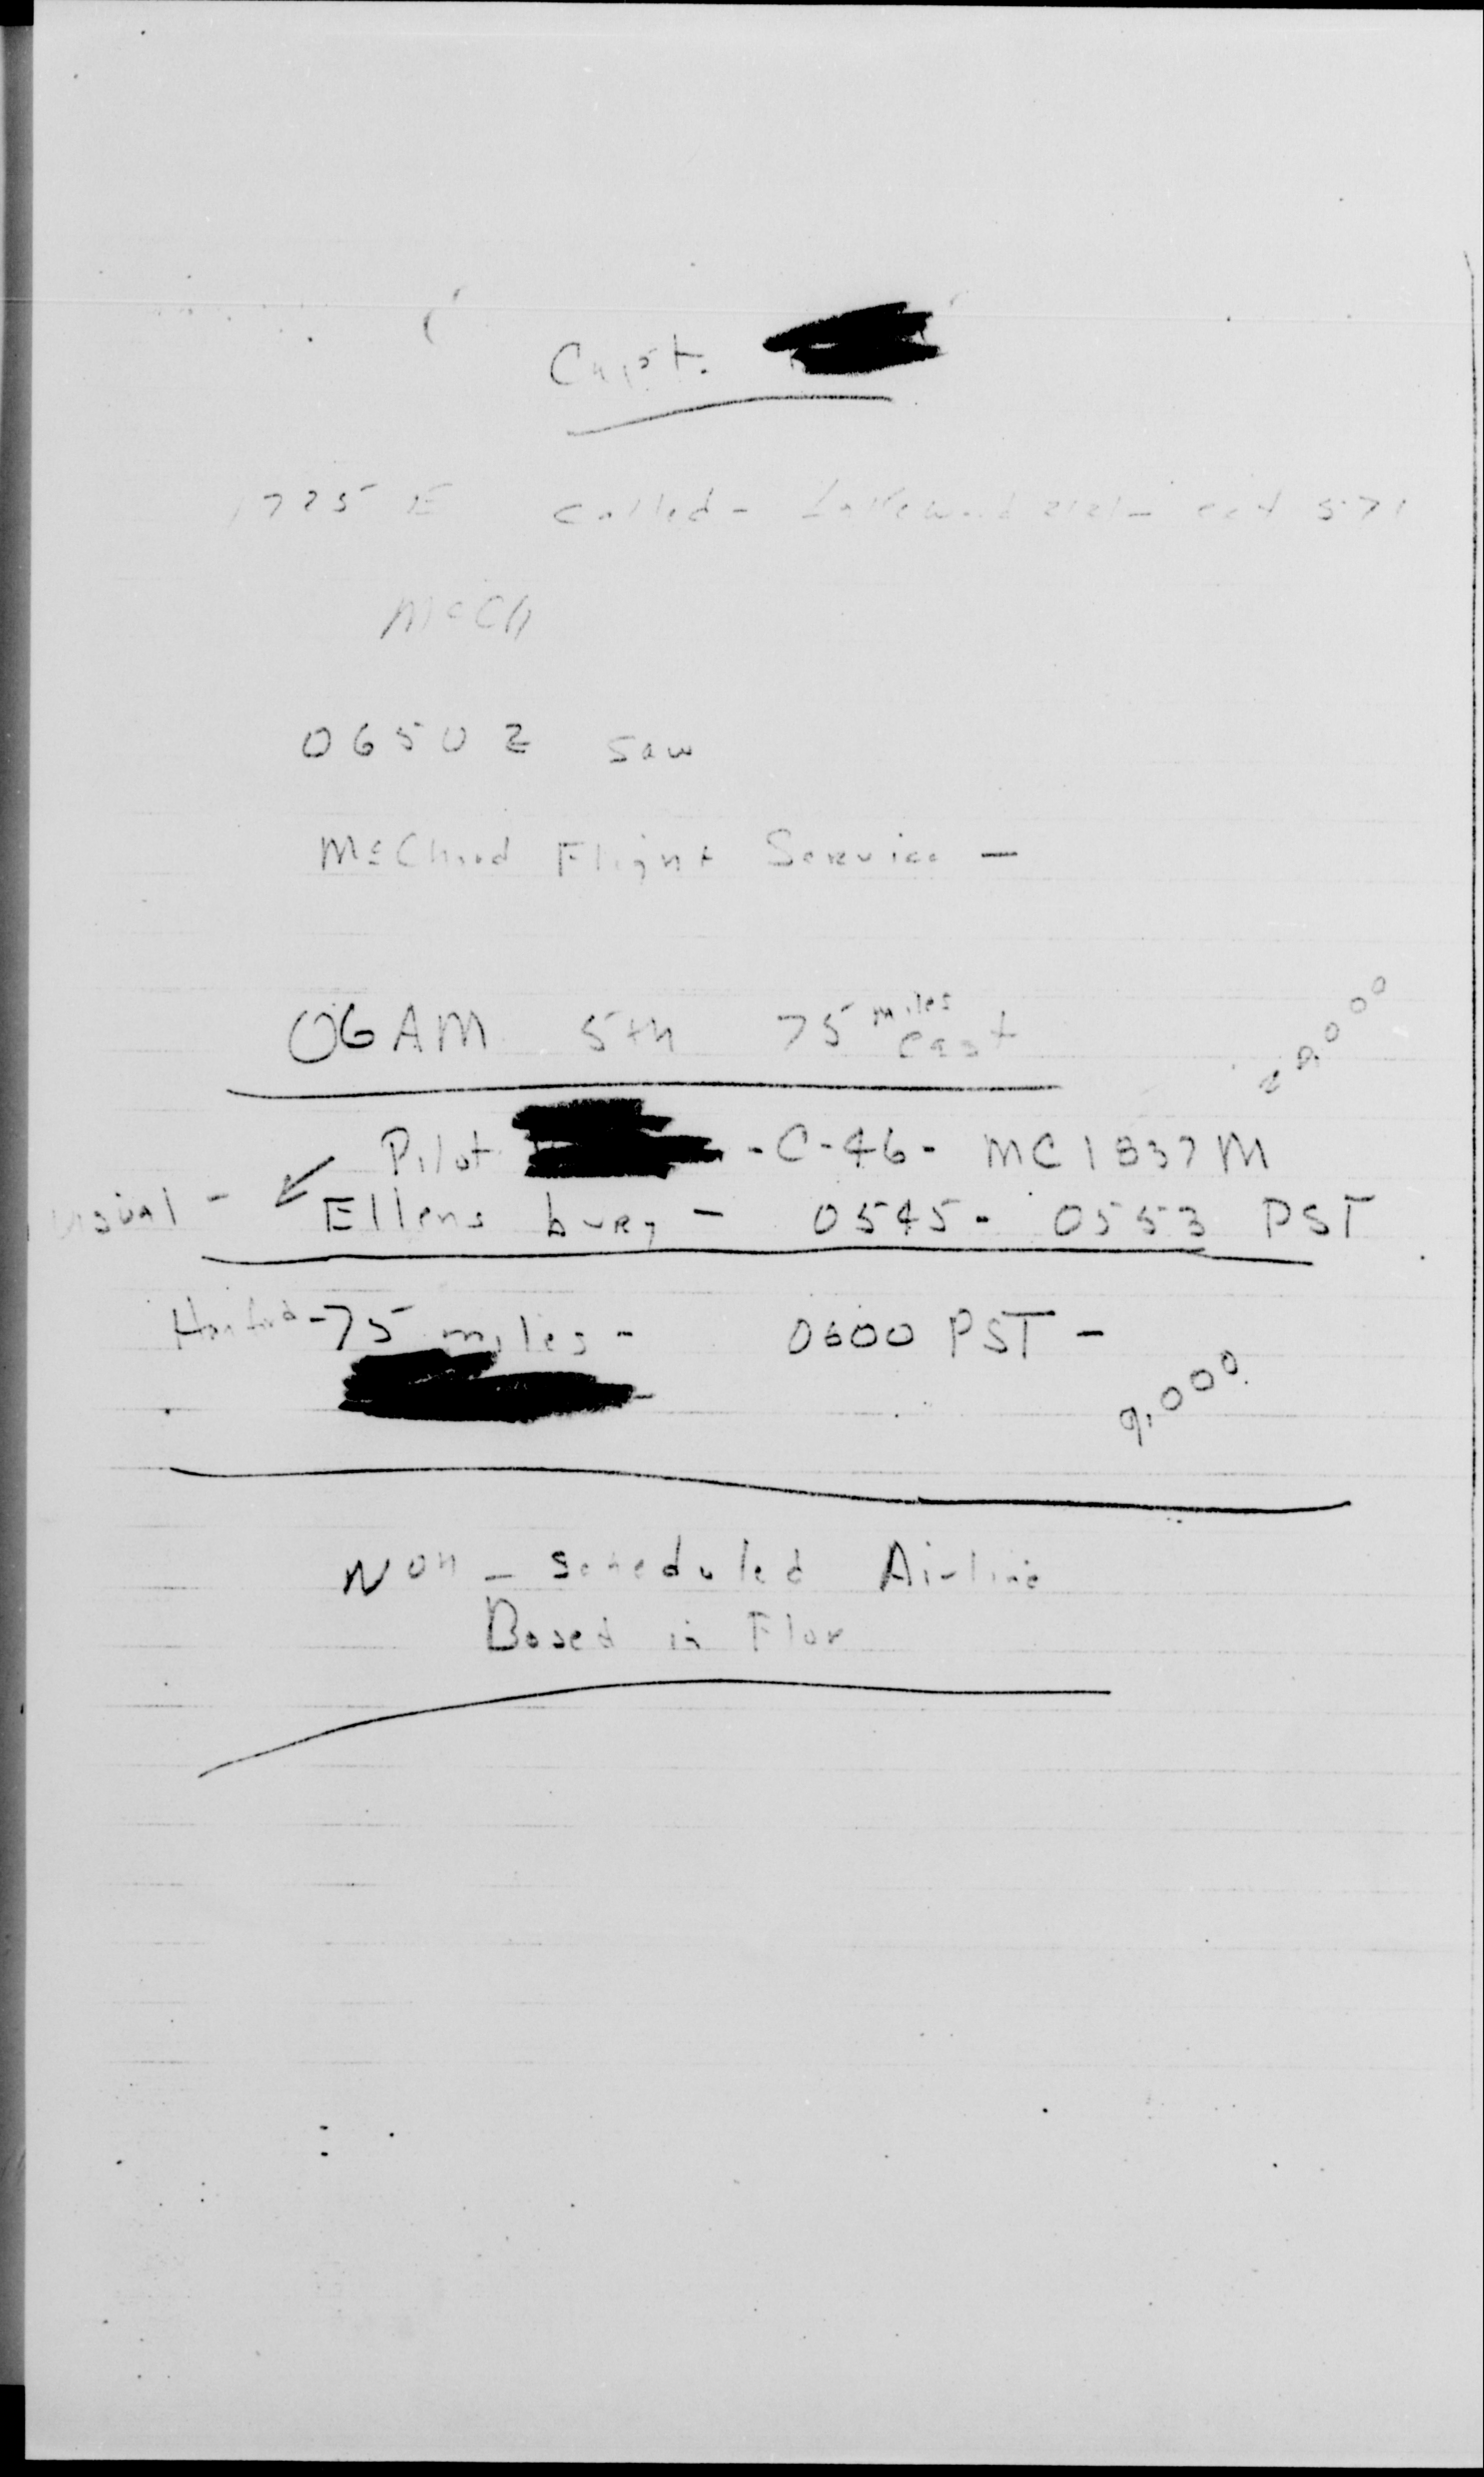 Capt.
1725 E called - Lakewood 2121 - ext 571
McCh
0650 Z saw
McChord Flight Service -
06 AM 5th 75 miles east
20,000
Pilot - C-46 - MC 1837M
Visual - Ellensburg - 0545 - 0553 PST
Hanford - 75 miles - 0600 PST -
9,000
Non - scheduled Airline
Based in Flor